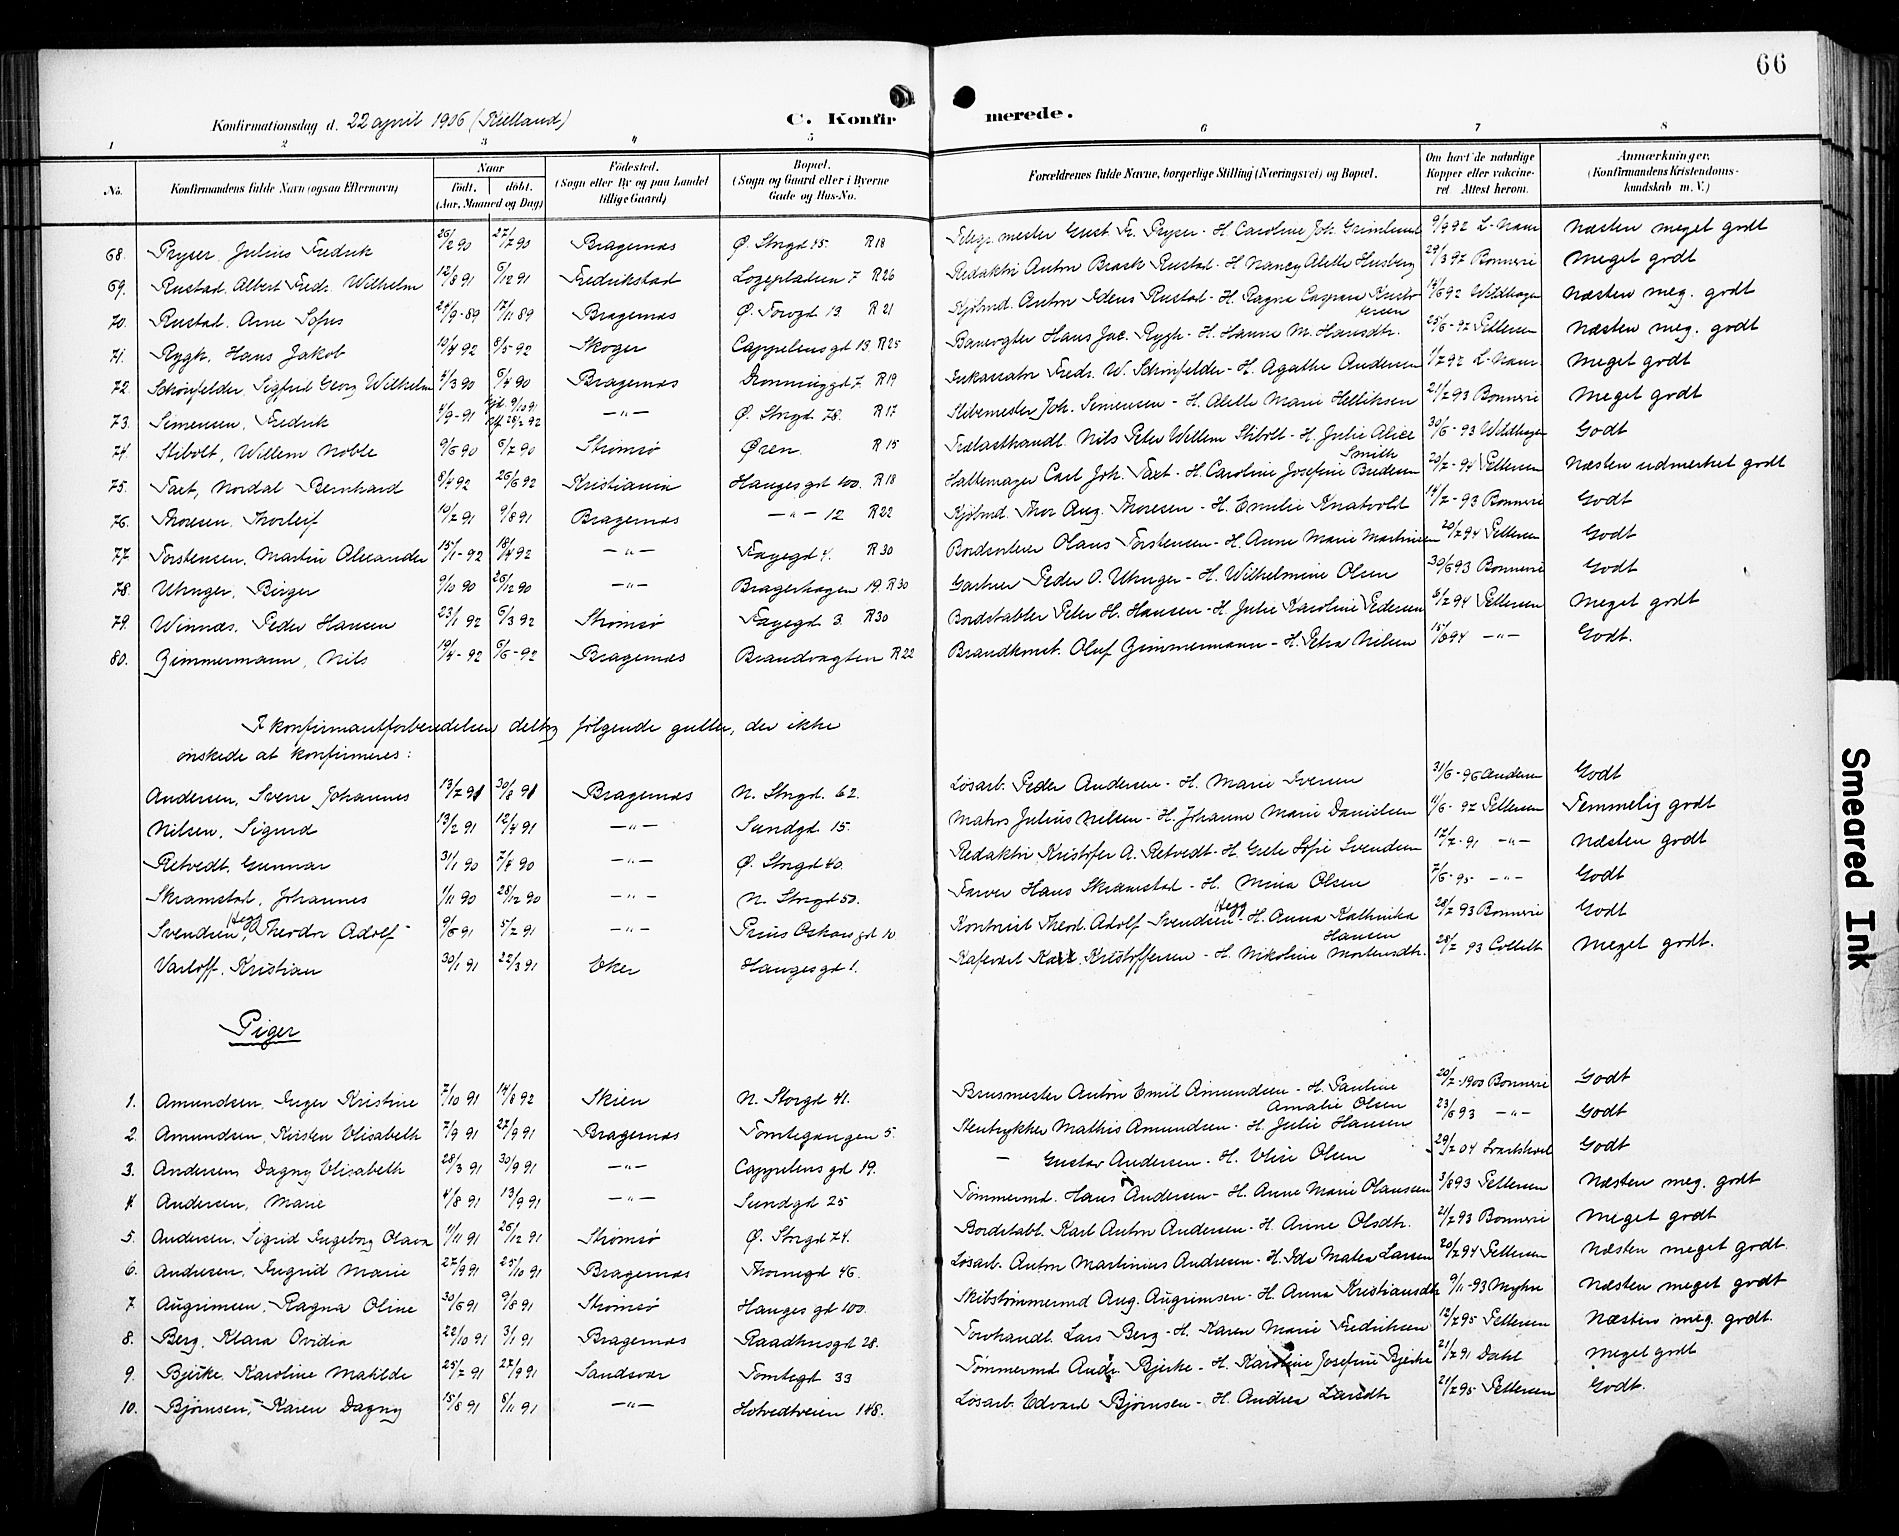 66
Konfirmationsdag d. 22 april 1906 (Kielland)
C. Konfirmerede.
1 2 3 4 5 6 7 8
No. Konfirmandens fulde Navn (ogsaa Efternavn) Naar født. døbt. (Aar, Maaned og Dag) Fødested. (Sogn eller By og paa Landet tillige Gaard) Bopæl. (Sogn og Gaard eller i Byerne Gade og Hus-No. Forældrenes fulde Navne, borgerlige Stilling (Næringsvei) og Bopæl. Om havt de naturlige Kopper eller vakcineret. Attest herom. Anmærkninger. (Konfirmandens Kristendomskundskab m. V.)
68. Pryser, Julius Fredrik 26/2 90 27/7 90 Bragernæs Ø. Strgd 15 R 18 Telegr. mester Gust. Fr. Pryser - H. Caroline Joh. 9/9 92 Næsten meget godt
69. Rustad, Albert Fredr. Wilhelm 12/8 91 6/12 91 Fredrikstad Logepladsen 7 R 26 Redaktør Anton Brock Rustad - H. Nancy Alette Husberg 29/3 92 Bonnevie Meget godt
70. Rustad, Arne Sofus 24/9-89 17/11 89 Bragernæs Ø. Torvgd 13 R 21 Kjøbmd. Anton Rustad - H. Ragna Caspara 14/6 92 Wildhagen Næsten meg. godt
71. Rygh, Hans Jakob 10/4 92 8/5-92 Skoger Cappelens gd 13. R 25 Banevogter Hans Jac. Rygh - H. Hanne M. Hansdtr. 25/6-92 Pettersen Næsten meg. godt
72. Schønfelder, Sigfred Georg Wilhelm 4/3 90 6/4 90 Bragernæs Dronninggd 7 R 19 Inkassator Fredr. W. Schønfelder - H. Agathe Andersen 1/7 92 Meget godt
73. Simensen, Fredrik 4/9-91 — " — Ø. Strgd. 78. R 17 Støbemester Joh. Simensen - H. Alette Marie Helliksen 21/2 93 Bonnevie Meget godt
74. Stibolt, Willem Noble 9/6 90 6/7 90 Strømsø Øren R 15 Trælasthandl. Nils Peter Willem Stibolt - H. Julie Alice Smith 30/6-93 Wildhagen Godt
75. Taxt, Nordal Bernhard 8/4 92 26/6 92 Kristiania Hauges gd 100. R 18 Hattemager Carl Joh. Taxt - H. Caroline Josefine Bredesen 20/2-94 Pettersen Næsten udmerket godt
76. Thoresen, Thorleif 10/2 91 9/8 91 Bragernæs — " — 12 R 22 Kjøbmd. Thor Aug. Thoresen - H. Emelie Knatvold 14/2-93 Bonnevie Godt
77. Torstensen, Martin Alexander 15/1-92 18/4 92 — " — Fayegd 4. R 30 Bordsorterer Olaus Torstensen - H. Anne Marie Martinsen 20/2 94 Pettersen Godt
78. Utenger, Birger 9/10 90 26/12 90 — " — Bragerhagen 19. R 30 Gartner Peder O. Utenger - H. Wilhelmine Olsen 30/6 93 Bonnevie Godt
79. Winnæs, Peder Hansen 23/1 92 6/3 92 Strømsø Fayegd 3. R 30 Bordstabler Peter H. Hansen - H. Julie Karoline Pedersen 6/2 94 Pettersen Meget godt
80. Zimmermann, Nils 19/4-92 6/6-92 Bragernæs Brandvagten R 22 Brandkonst. Oluf Zimmermann - H. Petra Nilsen 15/6 94 — " — Godt.
I konfirmantforberedelsen deltog følgende gutter, der ikke
ønskede at konfirmeres:
Andersen, Sverre Johannes 13/2 91 30/8 91 Bragernæs N. Strgd. 62. Løsarb. Peder Andersen - H. Marie Iversen 31/6-96 Andersen Godt
Nilsen, Sigurd 13/2 91 12/4 91 — " — Sundgd 15. Matros Julius Nilsen - H. Johanne Marie Danielsen 4/6-92 Pettersen Temmelig godt
Retvedt, Gunnar 31/1 90 7/4 90 — " — Ø. Strgd 40. Redaktør Kristofer A. Retvedt - H. Grete Sofie Svendsen 12/2-91 — " — Næsten godt
Skramstad, Johannes 1/11 90 28/12 90 — " — N. Strgd 50. Farver Hans Skramstad - H. Mina Olsen 7/6-95 — " — Godt
Svendsen, Hegg Theodor Adolf 9/6 91 5/7 91 — " — Prins Oskars gd 10 Kontorist Theod. Adolf Svendsen Hegg - H. Anna Kathinka Hansen 28/2 93 Bonnevie Godt
Varloff, Kristian 30/1 91 22/3 91 Eker Hauges gd 1. Kafevert Karl Kristoffersen - H. Nikoline Mortensdtr. 28/2 93 Collett Meget godt.
Piger
1. Amundsen, Inger Kristine 7/10 91 14/8 92 Skien N. Storgd 41. Brusmester Anton Emil Amundsen - H. Pauline Amalie Olsen 20/2-1900 Bonnevie Godt
2. Amundsen, Kirsten Elisabeth 7/9 91 27/9 91 Bragernæs Tomtegangen 5. Stentrykker Mathis Amundsen - H. Julie Hansen 23/6 93 — " — Godt
3. Andersen, Dagny Elisabeth 28/3 91 30/9 91 — " — Cappelens gd 19. — Gustav Andersen - H. Elise Olsen 29/2 04 Godt
4. Andersen, Marie 4/8 91 13/9 91 — " — Sundgd 25 Tømmermd. Hans Andersen - H. Anne Marie Olaussen 3/6 93 Pettersen Næsten meg. godt
5. Andersen, Sigrid Ingeborg Olava 11/11 91 26/12 91 Strømsø Ø. Strgd 74. Bordstabl. Karl Anton Andersen - H. Anne Olsdtr. 21/2 93 Bonnevie Meget godt
6. Andresen, Ingrid Marie 27/9 91 25/10 91 Bragernæs Thornegd 46. Løsarb. Anton Martinius Andresen - H. Ida Matea Larsen 20/2 94 Pettersen Næsten meget godt.
7. Augrimsen, Ragna Oline 30/6 91 9/8 91 Strømsø Hauges gd 100. Skibstømmermd Aug. Augrimsen - H. Anna Kristiansdtr 9/11-93 Myhre Næsten meget godt
8. Berg, Klara Ovidia 22/10 91 3/1 91 Bragernæs Raadhusgd 28. Torvhandl. Lars Berg - H. Karen Marie Fredriksen 12/2 95 Pettersen Næsten meg. godt.
9. Bjerke, Karoline Matilde 25/7 91 27/9 91 Sandsvær Tomtegd 33 Tømmermd Andr. Bjerke - H. Karoline Josefine Bjerke 21/2 91 Dahl Meget godt
10. Bjørnsen, Karen Dagny 15/8 91 8/11 91 — " — Hotvedtveien 148. Løsarb. Edvard Bjørnsen - H. Andrea Larsdtr 21/2 95 Pettersen Godt.
Smeared Ink